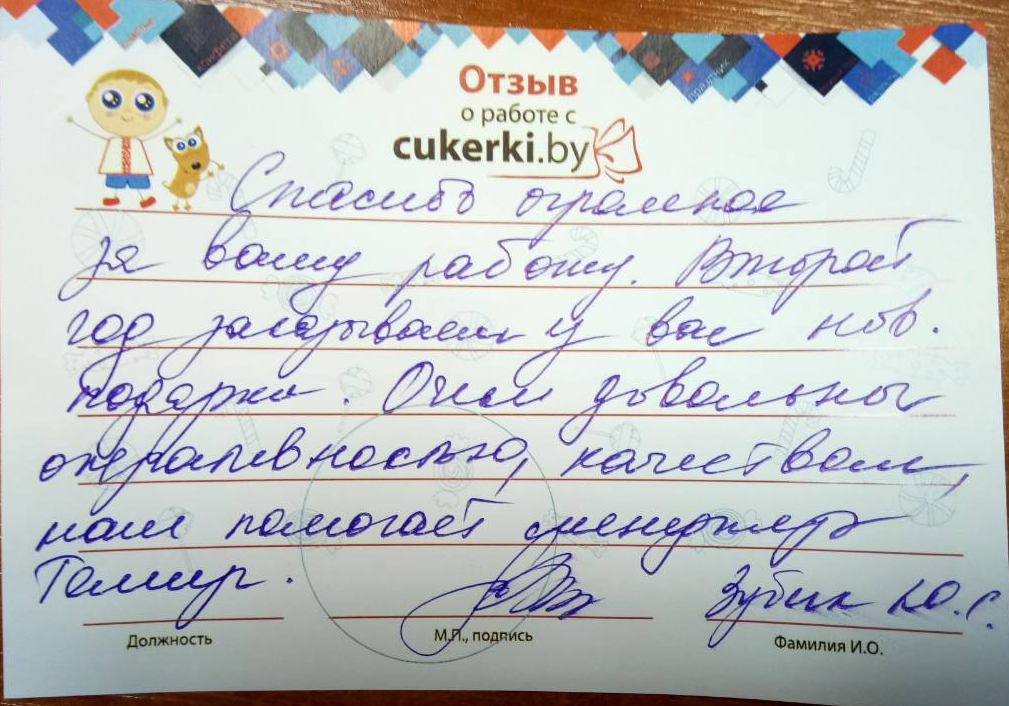 Отзыв
о работе с
cukerki.by
Спасибо огромное
за вашу работу. Второй
год заказываем у вас нов.
подарки. Очень довольны
оперативностью, качеством,
нам помогает менеджер
Тимур.
Зубик Ю.С.
Должность
М.П., подпись
Фамилия И.О.